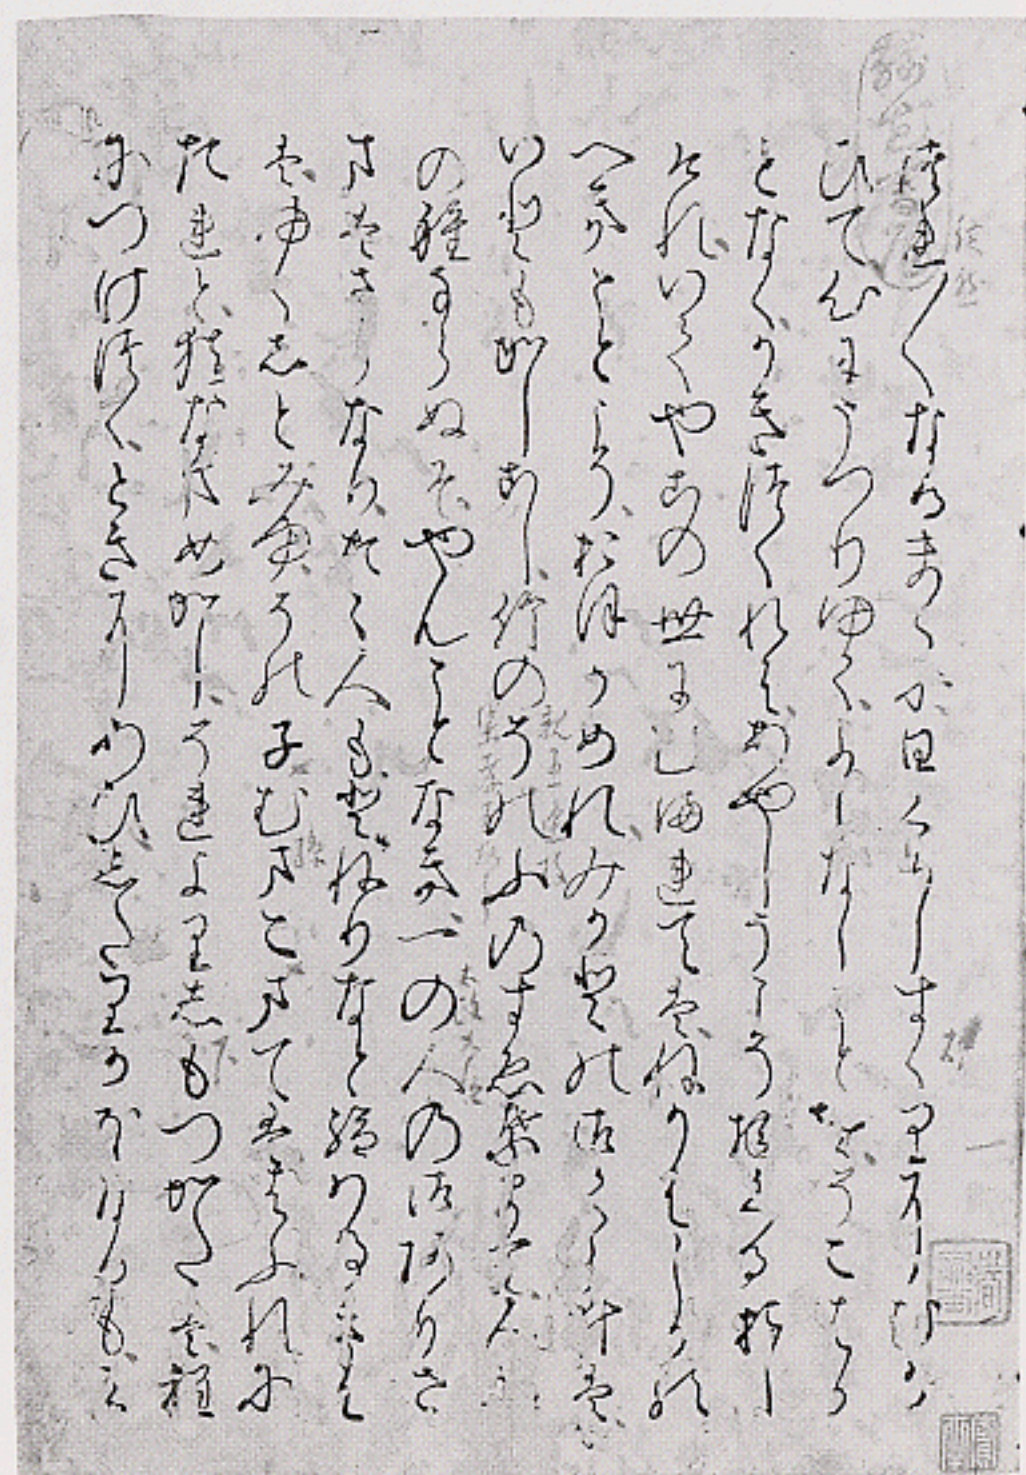 つれ／＼なるまゝに日くらしすゝりにむか
ひて心にうつりゆくよしなしことをそこはか
となくかきつくれはあやしうこそ物くるおし
けれいてやこの世にむまれてはねかはしかる
へきことこそおほかめれみかとの御くらゐは
いともかしこし竹のそのふのすゑ葉まて人間
の種ならぬそやんことなき一の人の御ありさ
まはさらなりたゝ人もとねりなと給はるきは
はゆゝしとみゆその子むまこまてははふれに
たれと猶なまめかしそれよりしもつかたは程
につけつゝときにあひしたりかほなるもみ